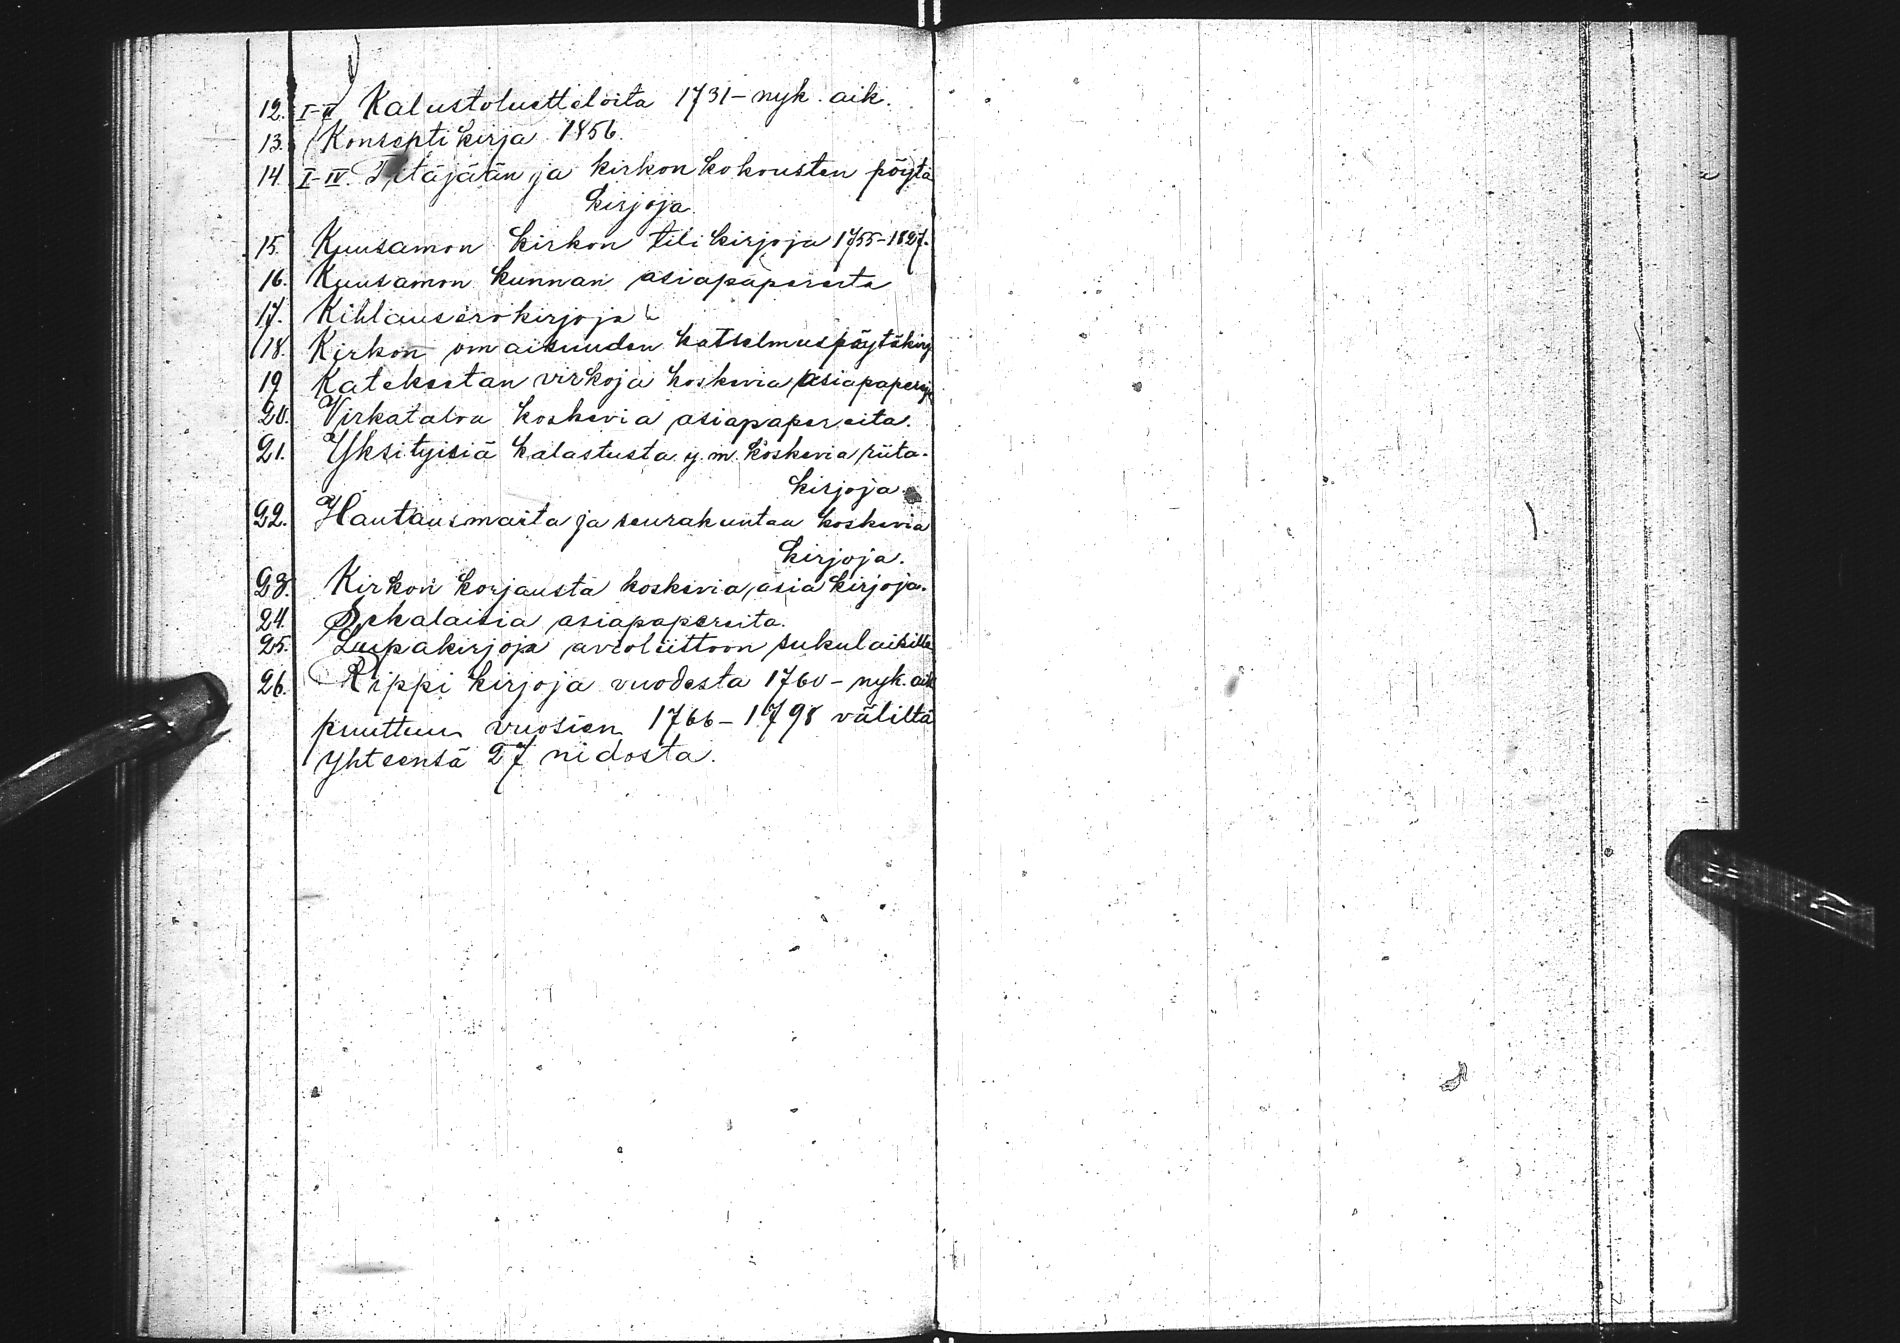 12. I-V Kalustoluetteloita 1731- nyk. aik.
13. Konseptikirja 1856.
14 I-IV. Pitäjään ja kirkonkokousten pöytä
kirjoja.
15. Kuusamon kirkon tilikirjoja 1755-1827.
16. Kuusamon kunnan asiapapereita
17. Kihlauserokirjoja
18. Kirkon omaisuuden katselmuspöytäkirj
19 Katekeetan virkoja koskevia asiapaperej
20. Virkataloa koskevia asiapapereita.
21. Yksityisiä kalastusta y.m. koskevia riita-
kirjoja.
22. Hautausmaita ja seurakuntaa koskevia
kirjoja.
23. Kirkon korjausta koskevia asiakirjoja.
24. Sekalaisia asiapapereita.
25. Lupakirjoja avioliittoon sukulaisille
26. Rippikirjoja vuodesta 1760 - nyk. aik
puuttuu vuosien 1766-1798 väliltä
yhteensä 27 nidosta.